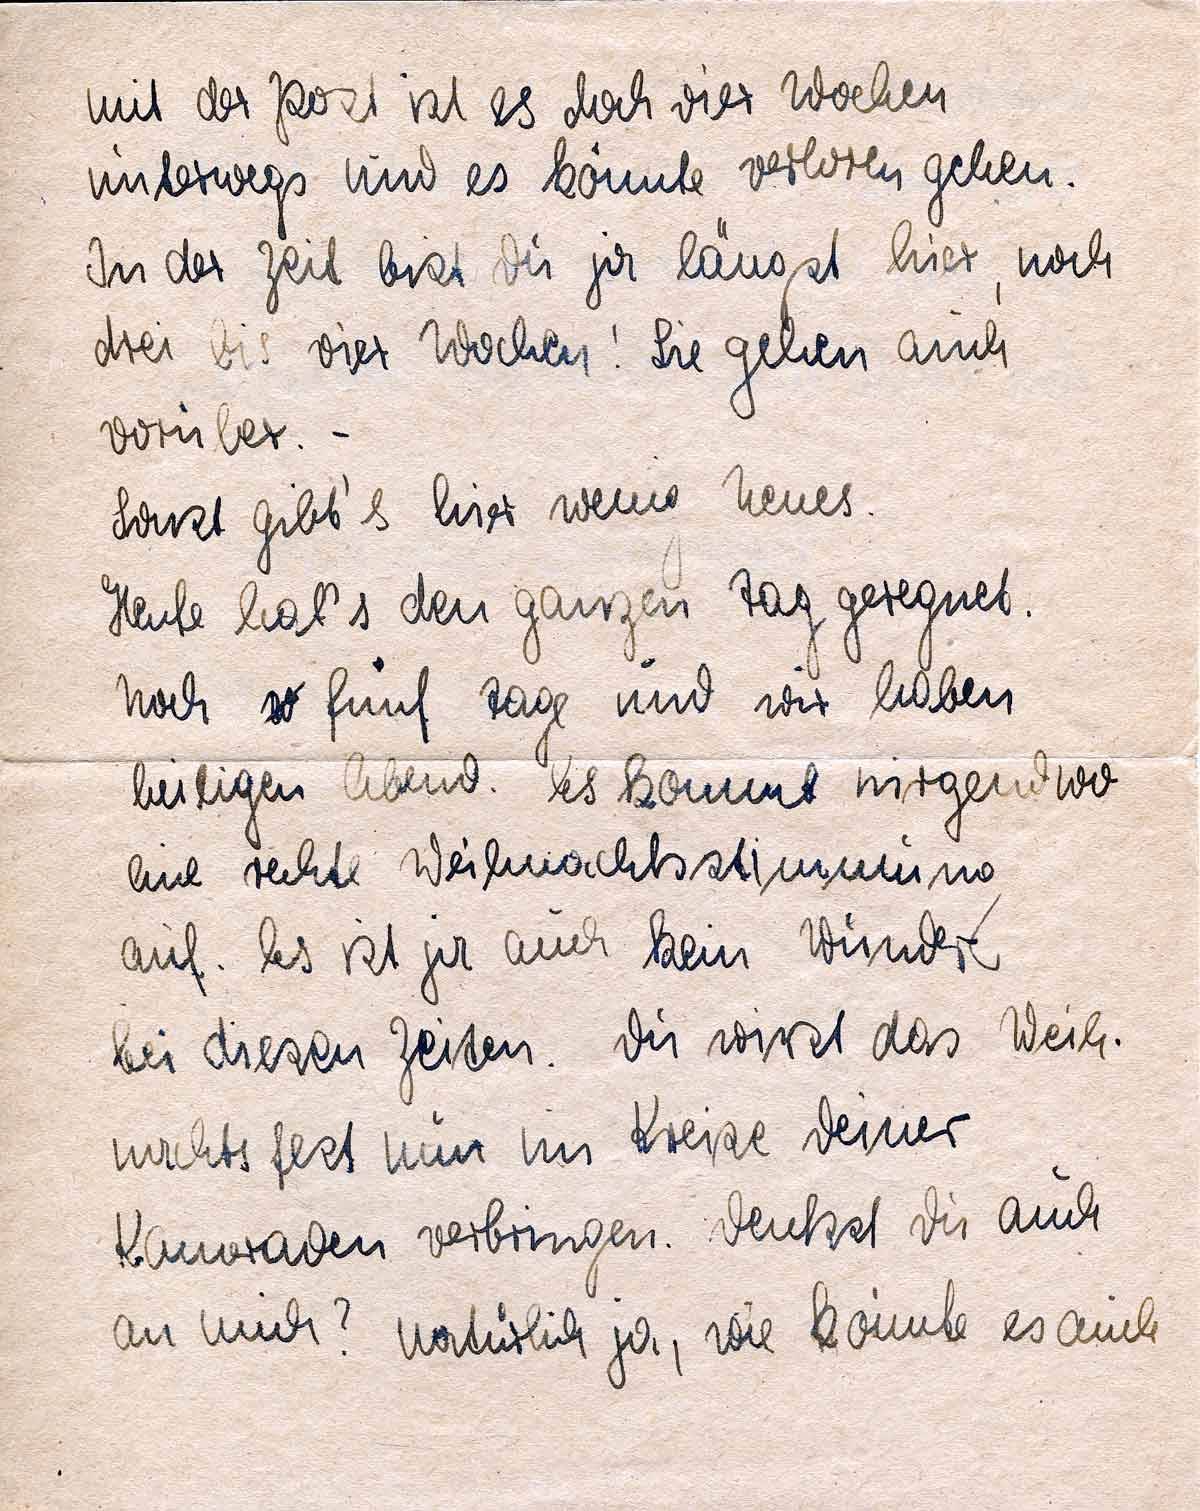 mit der Post ist es doch vier Wochen
unterwegs und es könnte verloren gehen.
In der Zeit bist Du ja längst hier, noch
drei bis vier Wochen! Sie gehen auch
vorüber. -
Sonst gibt's hier wenig Neues.
Heute hat's den ganzen Tag geregnet.
Noch so fünf Tage und wir haben
heiligen Abend. Es kommt nirgendwo
eine rechte Weihnachtsstimmung
auf. Es ist ja auch kein Wunder
bei diesen Zeiten. Du wirst das Weih-
nachtsfest nun im Kreise Deiner
Kameraden verbringen. Denkst Du auch
an mich? Natürlich ja, wie könnte es auch